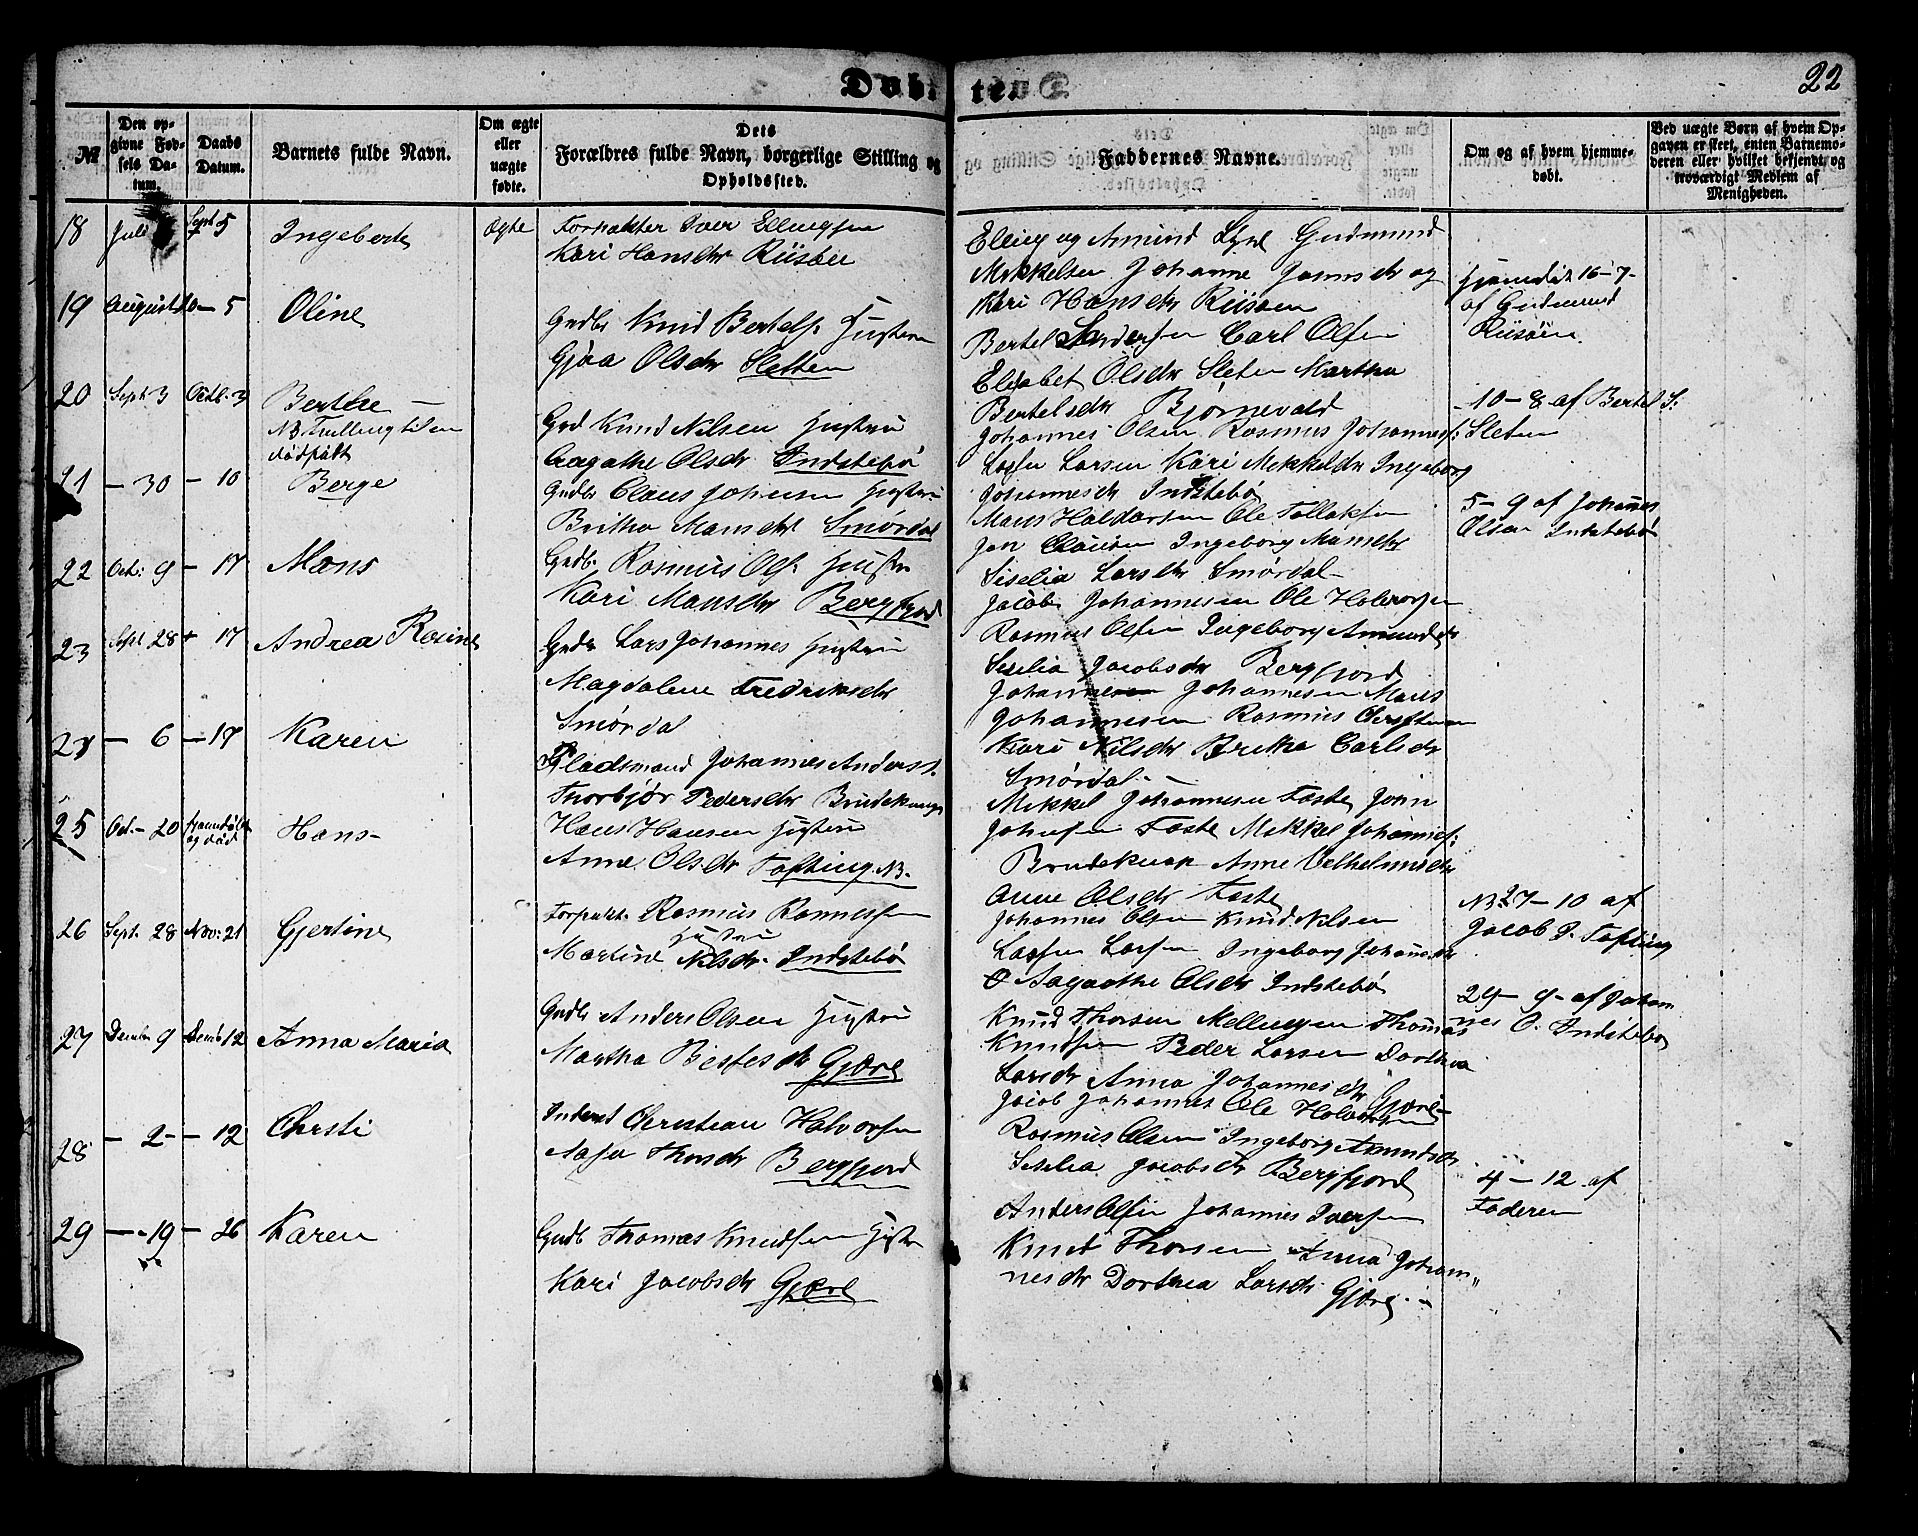 Døbte.
22
№
Den op-
givne Fød-
sels Da-
tum.
Daabs
Datum.
Barnets fulde Navn.
Om ægte
eller
uægte
fødte.
Dets
Forældres fulde Navn, borgerlige Stilling og
Opholdssted.
Faddernes Navne.
Om og af hvem hjemme-
døbt.
Ved uægte Børn af hvem Op-
gaven er skeet, enten Barnemo-
deren eller hvilket bekjendt og
troværdigt Medlem af
Menigheden.
18 Juli Sept 5 Ingeborg Ægte Forpakter Iver Ellingsen
Kari Hansdtr Riisøen
Elling og Amund Gudmund
Mikkelsen Johanne Jonnsdtr og
Kari Hansdtr Riisøen
Hjemdøbt 16-7-
af Gudmund
Riisøen.
19 August 10 - 5 Oline
Grdbr Knud Bertels. Hustru
Gjøa Olsdtr Sletten
Bertel Andersen Carl Olsen
Elisabet Olsdtr Sleten Martha
Bertelsdtr Bjørnevald
10-8 af Bertel S:
Sleten
20 Sept 3 Octb. 3 Berthe -
NB Tvilling til en
dødfødt
Grd Knud Nilsen Hustru
Aagathe Olsdtr Indstebø
Johannes Olsen Rasmus Johannes:
Larsen Kari Mikkelsdr Ingeborg
Johannesdr Indstebø
5-9 af Johannes
Olsen Indstebø
21 - 30 - 10 Berge
Grdbr Claus Johnsen Hustru
Britha Mansdtr Smørdal
Mans Haldorsen Ole Tollaksen
Jon Clausen Ingeborg Mansdtr
Siselia Larsdtr Smørdal-
22 Oct: 9 - 17 Mons
Grdb. Rasmus Ols. Hustru
Kari Mansdtr Bergfjord
Jacob Johannesen Ole Halvorsen
Rasmus Olsen Ingeborg Amundsdr
Siselia Jacobsdtr Bergfjord
23 Spt 28 - 17 Andrea Rasine
Grdbr Lars Johannes Hustru
Magdalene Fredriksdtr
Smørdal
Johannesen Johannesen Mans
Johannesen Rasmus
Kari Nilsdtr Britha Carlsdr
Smørdal -
24 - 6 - 17 Karen
Pladsmand Johannes Anders.
Thorbjør Pedersdtr Brudeknap
Mikkel Johannesen Taste John
Johnsen Taste Mikkel Johannes:
Brudeknap Anne Velhelmsdtr
Anne Olsdtr Taste
25 Oct- 20 hjemdøbt
og død Hans-
Hans Hansen Hustru
Anne Olsdtr Tofting. NB.
NB 27-10 af
Jacob P. Tofting
26 Sept. 28 Nov: 21 Gjertine
Forpakt. Rasmus Rasmussen
Hustru
Martine Nilsdr. Indstebø
Johannes Olsen Knud Nilsen
Larsen Ingeborg Johannesdr
Aagathe Olsdr Indstebø
29-9- af Johan
nes O. Indstebø
27 Decmbr 9 Decmb 12 Anna Maria
Grdbr Anders Olsen Hustru
Martha Gjøre
Knud Thorsen Mellingen Thomas
Knudsen Peder Larsen Dorthea
Larsdtr Anna Johannesdtr Gjøre-
28 - 2 - 12 Christi
Inderst Christian Halvorsen
Aasa Thorsdtr Bergfjord
Jacob Johannes Ole Halvorsen
Rasmus Olsen Ingeborg Amundsdr
Siselia Jacobsdr Bergfjord
4-12 af
Faderen
29 - 19 - 26 Karen
Grdb Thomas Knudsen Hustru
Kari Jacobsdr Gjøre
Anders Olsen Johannes Iversen
Knud Thorsen Anna Johan-
nesdr Dorthea Larsdr. Gjøre. -